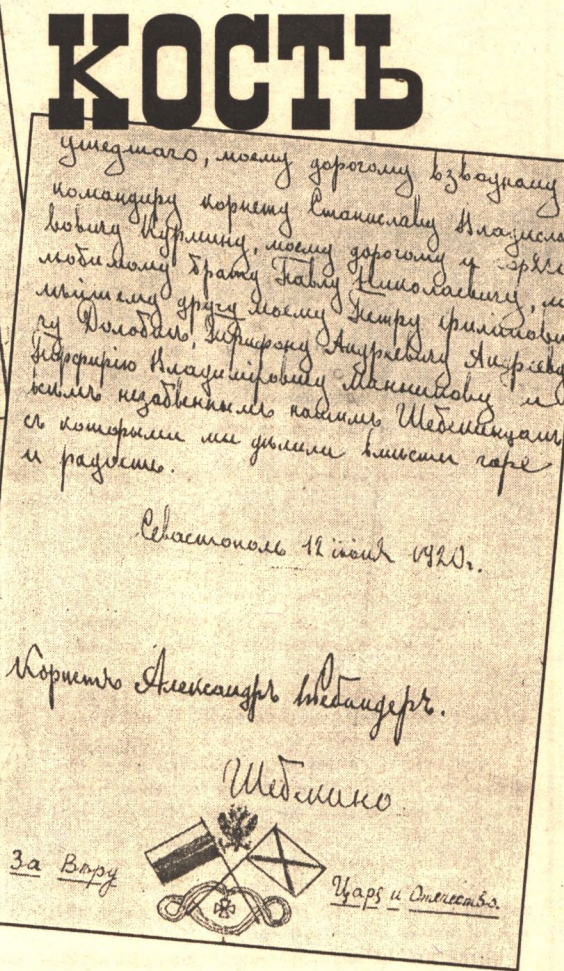 КОСТЬ
ушедшаго, моему дорогому взводному
командиру корнету Станиславу Владисла
вовичу Курмину, моему дорогому и
любимому брату Павлу Николаевичу,
другу моему Петру Филиппови
чу Долобинъ, Трифону Андреевичу Андрееву
Порфирію Владиміровичу Манникову и
всѣмъ незабвеннымъ нашимъ Шебекинцамъ
съ которыми мы дѣлили вмѣсти горе
и радость.
Севастополь 12 1920г.
Корнетъ Александръ
За Вѣру
Царя и Отечество.